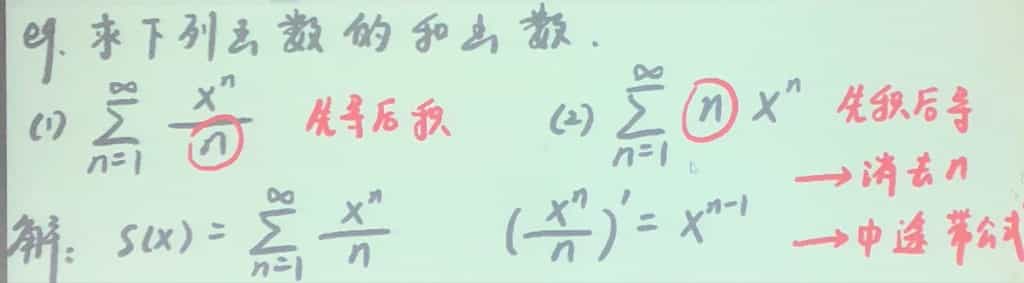 eg. 求下列函数的和函数.
(1) ∑_{n=1}^{∞} x^n/n 先导后积 (2) ∑_{n=1}^{∞} n x^n 先积后导
→消去n
解: S(x) = ∑_{n=1}^{∞} x^n/n (x^n/n)' = x^{n-1} →中途带公式